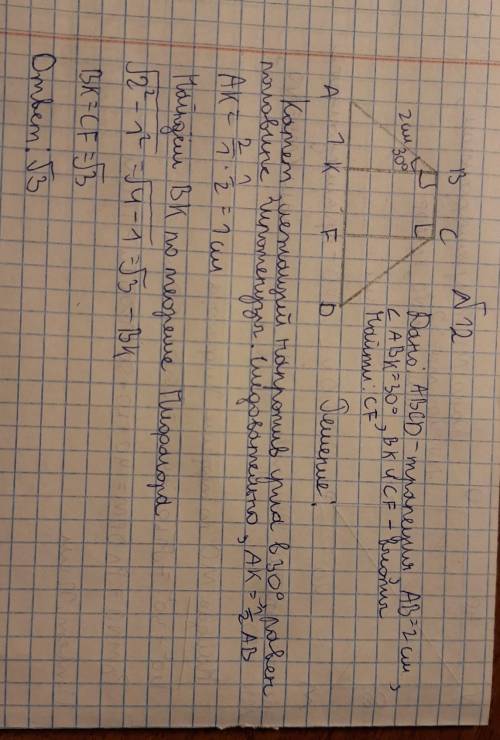 №12
Дано: ABCD-трапеция, AB=2см,
∠ABK=30°, BK и CF - высоты
Найти: CF
B
C
2см
30°
A
1
K
F
D
Решение:
Катет лежащий напротив угла в 30° равен
половине гипотенузы. Следовательно, AK=½AB
AK = 2/1 · 1/2 = 1см
Найдём BK по теореме Пифагора
√2²-1² = √4-1 = √3 - BK
BK=CF=√3
Ответ: √3